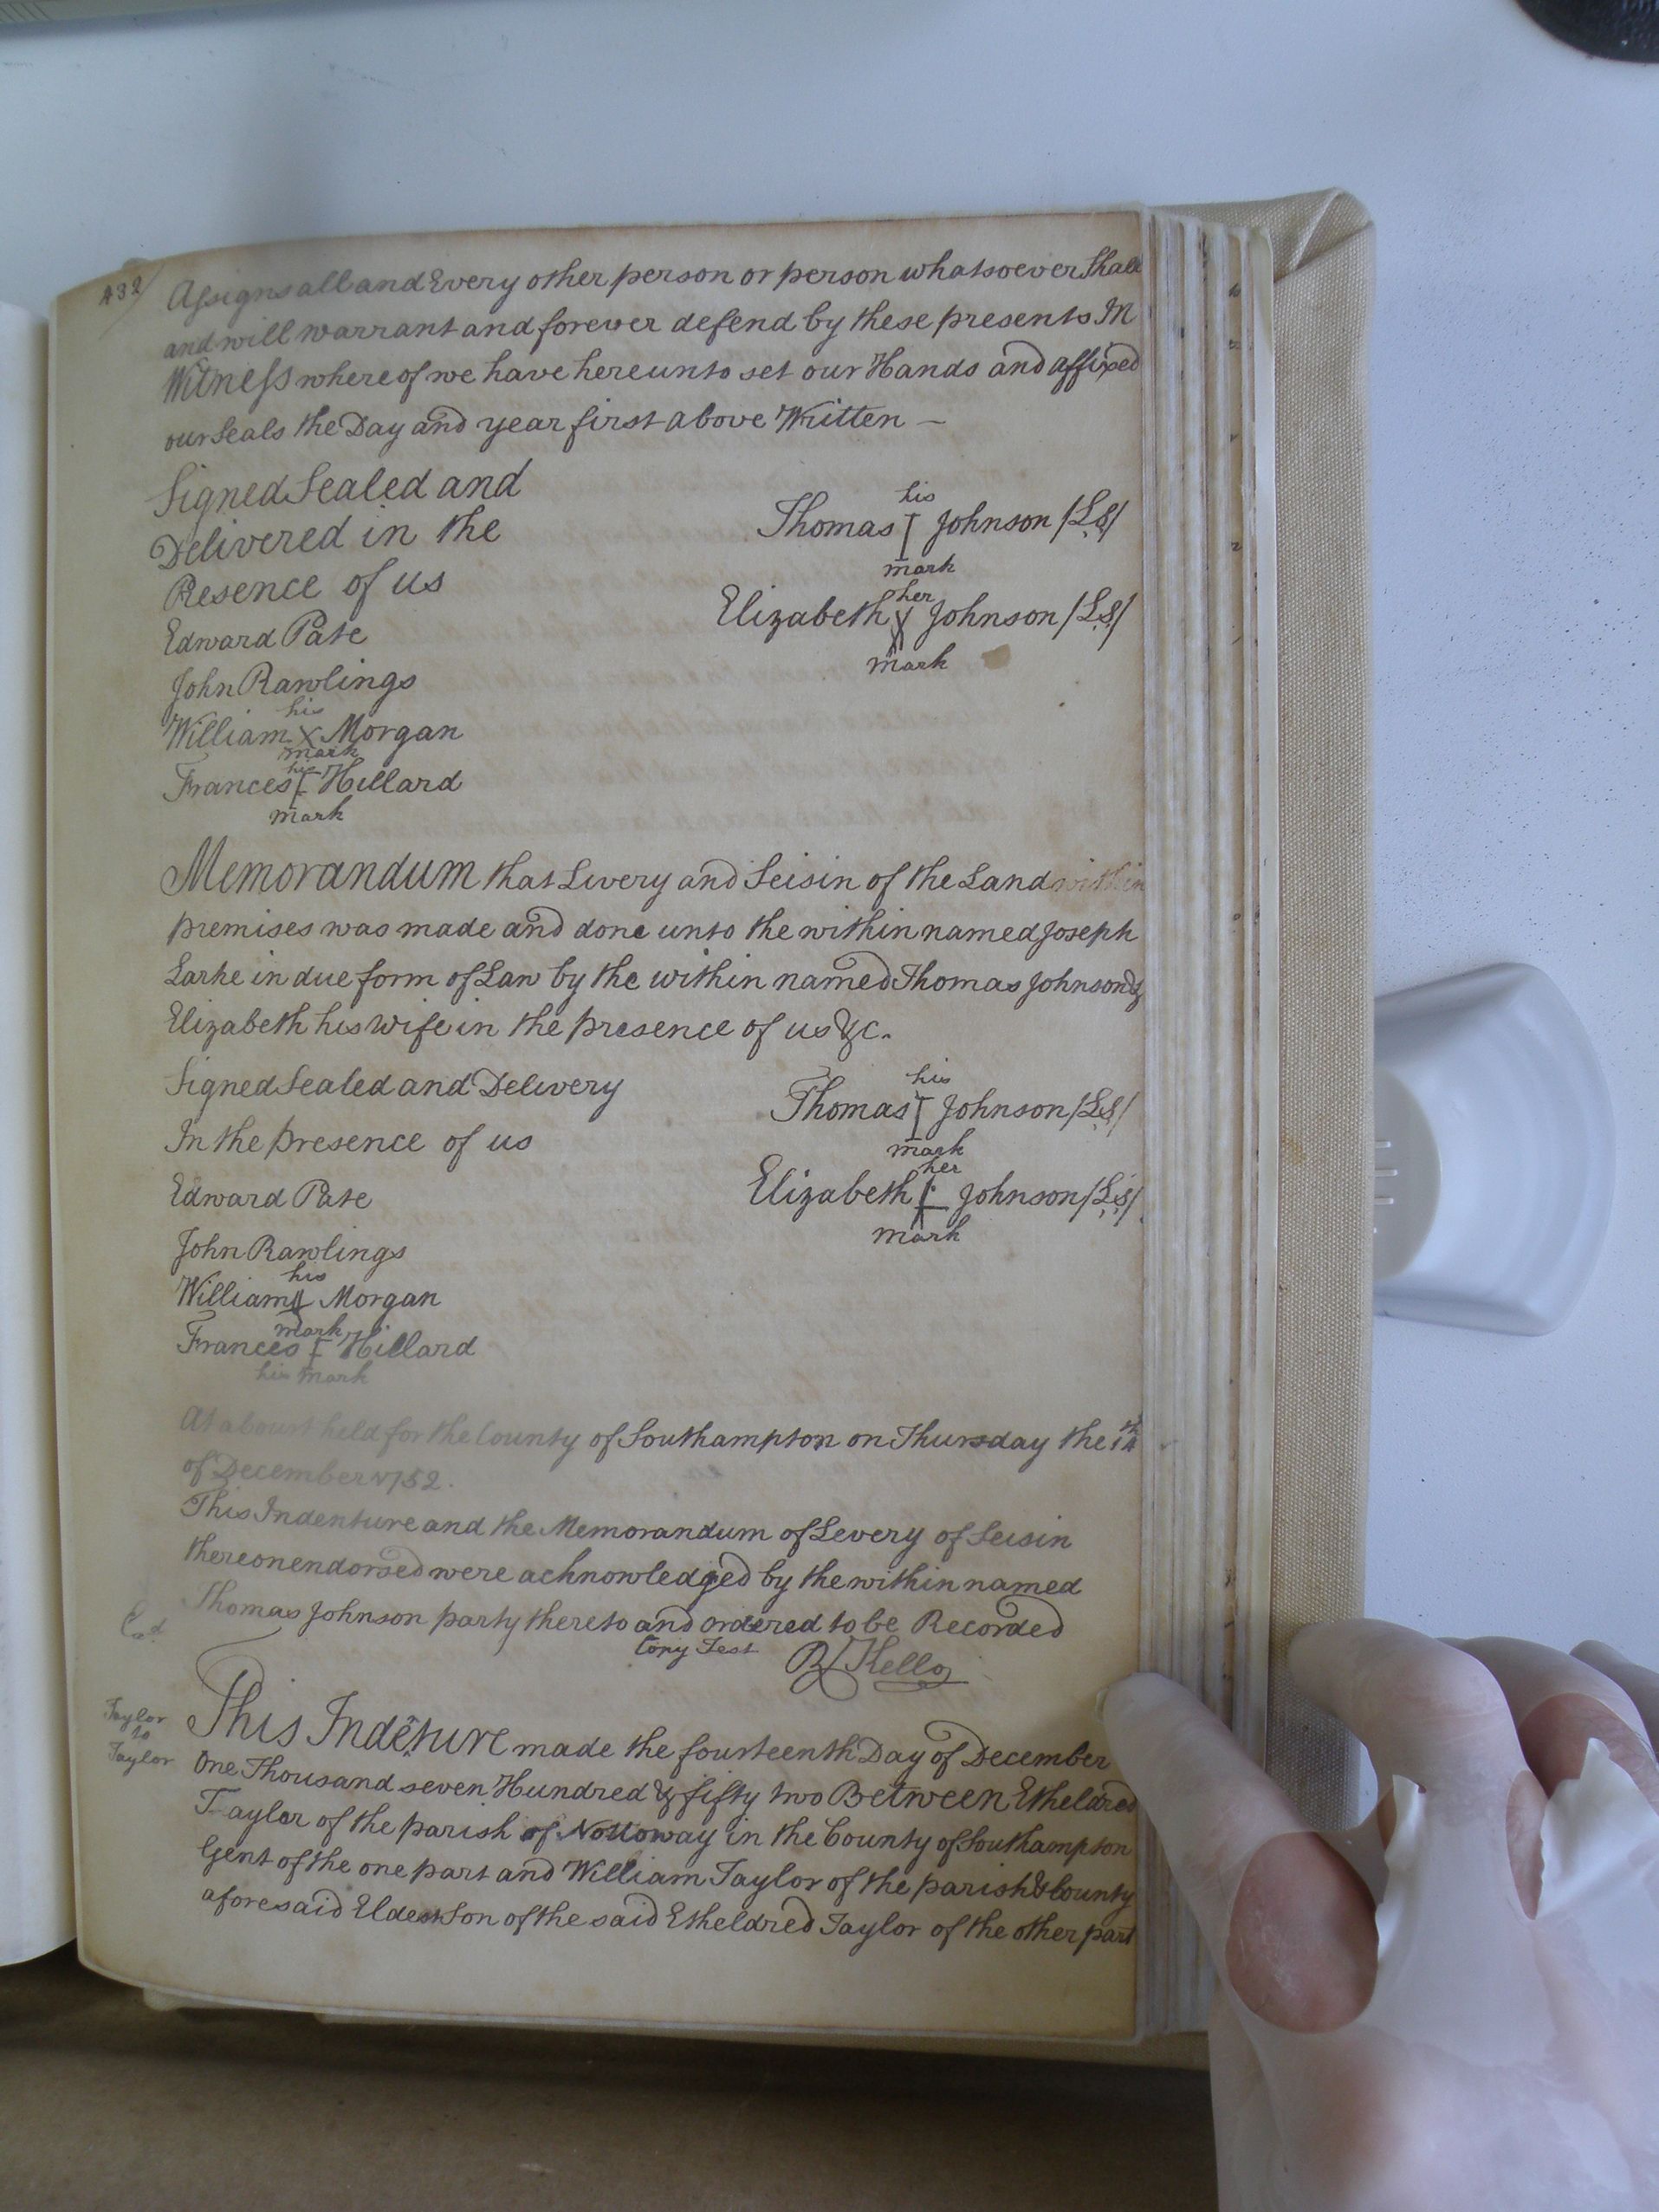 432/
Assigns all and Every other person or person whatsoever Shall
and will warrant and forever defend by these presents In
Witness whereof we have hereunto set our Hands and affixed
our Seals the Day and year first above Written —
Signed Sealed and
Delivered in the
Presence of us
his
Thomas I Johnson /LS/
mark
her
Elizabeth Johnson /LS/
mark
Edward Pate
John Rawlings
his
William X Morgan
mark
his
Frances Hillard
mark
Memorandum that Livery and Seisin of the Land within
premises was made and done unto the within named Joseph
Larke in due form of Law by the within named Thomas Johnson &
Elizabeth his Wife in the presence of us &c.
Signed Sealed and Delivery
In the presence of us
his
Thomas I Johnson /LS/
mark
her
Elizabeth Johnson /LS/
mark
Edward Pate
John Rawlings
his
William Morgan
mark
Frances Hillard
his mark
At a Court held for the County of Southampton on Thursday the 14th
of December 1752.
This Indenture and the Memorandum of Levery of Seisin
thereon endorsed were acknowledged by the within named
Thomas Johnson party thereto and ordered to be Recorded
Copy Test R Kello
Taylor
to
Taylor
This Indenture made the fourteenth Day of December
One Thousand seven Hundred & fifty two Between Etheldred
Taylor of the parish of Nottoway in the County of Southampton
Gent of the one part and William Taylor of the parish & County
aforesaid Eldest Son of the said Etheldred Taylor of the other part